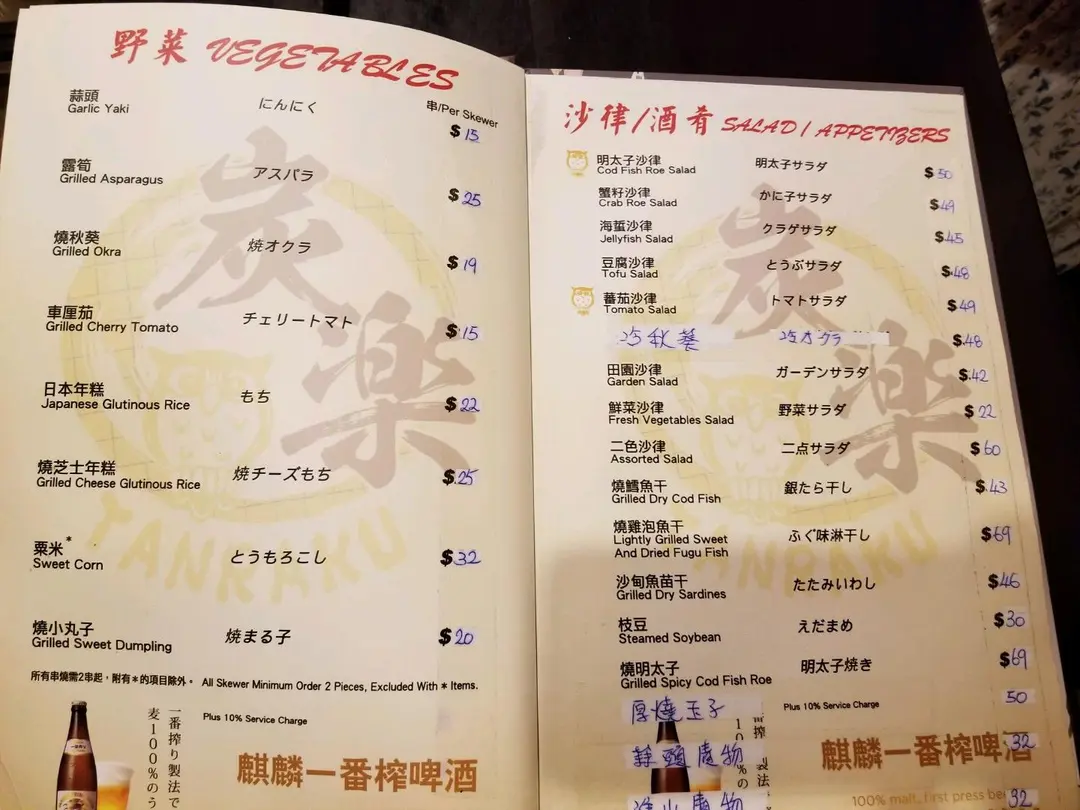 野菜 VEGETABLES
串/Per Skewer
蒜頭 にんにく
Garlic Yaki
$ 15
露筍 アスパラ
Grilled Asparagus
$ 25
燒秋葵 焼オクラ
Grilled Okra
$ 19
車厘茄 チェリートマト
Grilled Cherry Tomato
$ 15
日本年糕 もち
Japanese Glutinous Rice
$ 22
燒芝士年糕 焼チーズもち
Grilled Cheese Glutinous Rice
$ 25
粟米* とうもろこし
Sweet Corn
$ 32
燒小丸子 焼まる子
Grilled Sweet Dumpling
$ 20
所有串燒需2串起，附有*的項目除外。 All Skewer Minimum Order 2 Pieces, Excluded With * Items.
Plus 10% Service Charge
一番搾り製法で
麦100%のう
麒麟一番榨啤酒
炭楽
TANRAKU
沙律/酒肴 SALAD / APPETIZERS
明太子沙律 明太子サラダ $ 50
Cod Fish Roe Salad
蟹籽沙律 かに子サラダ $ 49
Crab Roe Salad
海蜇沙律 クラゲサラダ $ 45
Jellyfish Salad
豆腐沙律 とうぶサラダ $ 48
Tofu Salad
蕃茄沙律 トマトサラダ $ 49
Tomato Salad
秋葵 オクラ $ 48
田園沙律 ガーデンサラダ $ 42
Garden Salad
鮮菜沙律 野菜サラダ $ 22
Fresh Vegetables Salad
二色沙律 二点サラダ $ 60
Assorted Salad
燒鱈魚干 銀たら干し $ 43
Grilled Dry Cod Fish
燒雞泡魚干 ふぐ味淋干し $ 69
Lightly Grilled Sweet
And Dried Fugu Fish
沙甸魚苗干 たたみいわし $ 46
Grilled Dry Sardines
枝豆 えだまめ $ 30
Steamed Soybean
燒明太子 明太子焼き $ 69
Grilled Spicy Cod Fish Roe
厚燒玉子 50
Plus 10% Service Charge
蒜頭 物 32
物 32
搾り製法
0%の
麒麟一番榨啤酒
100% malt, first press be
炭楽
TANRAKU